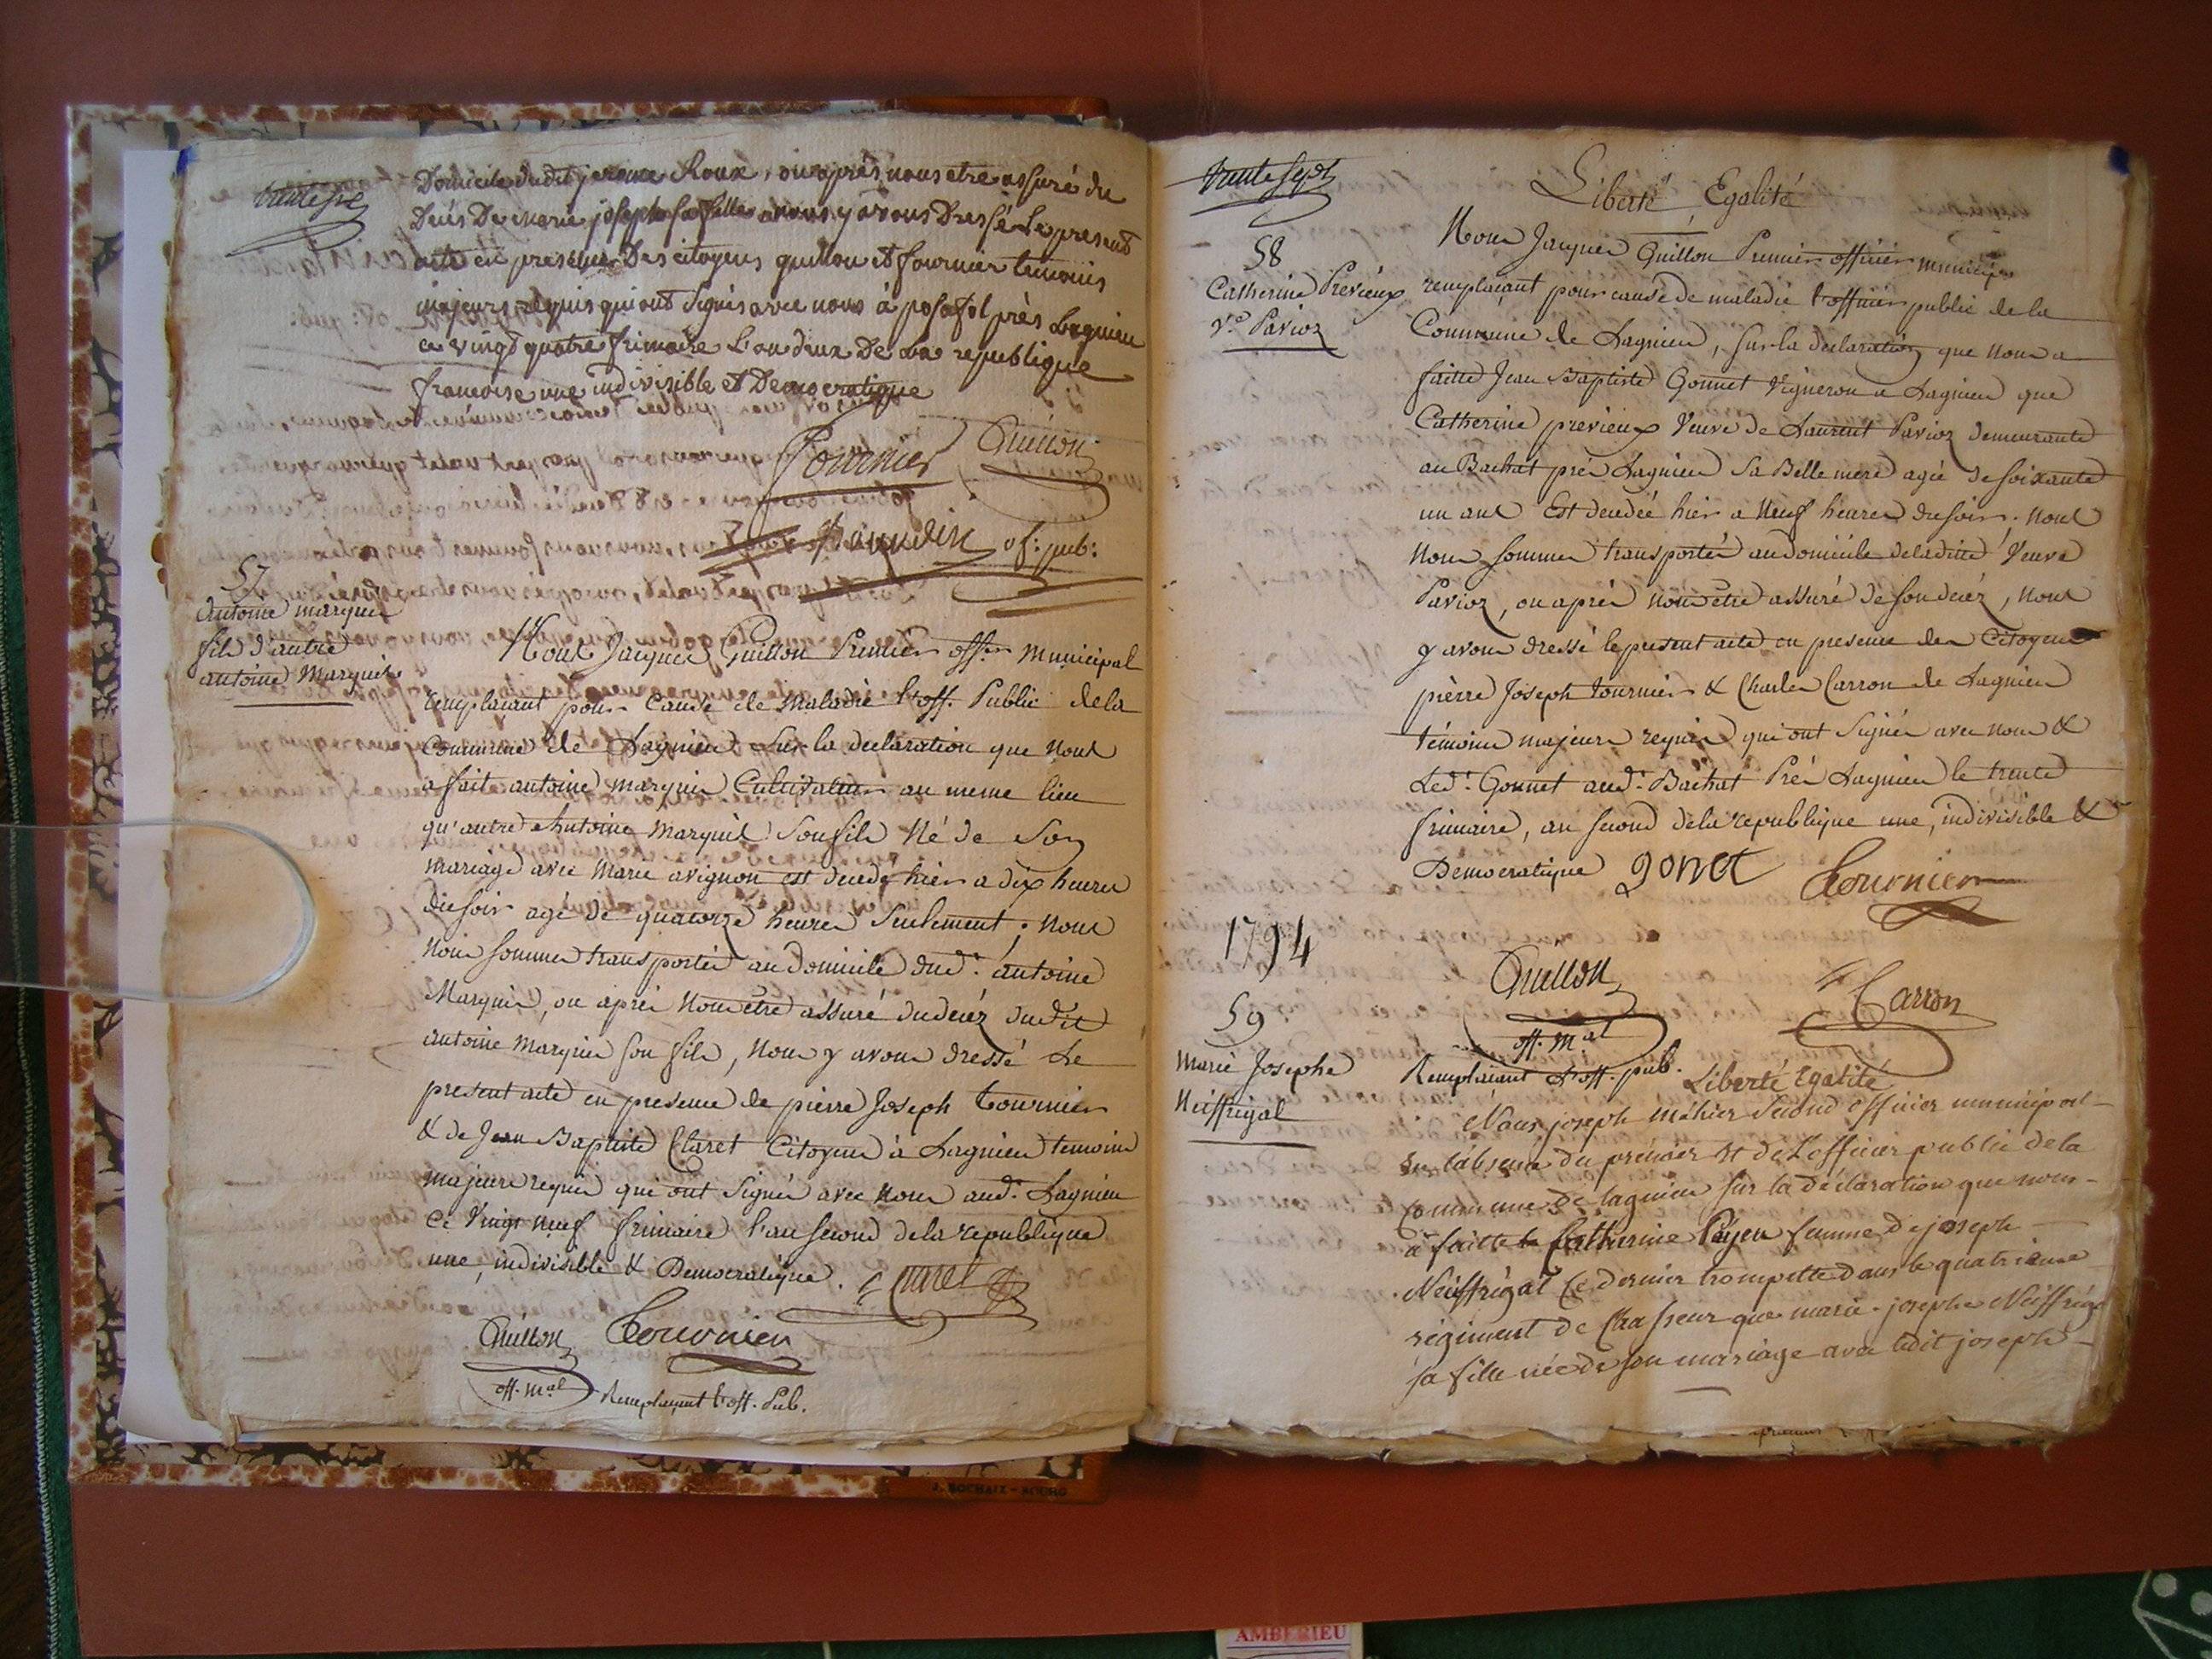 trente six
Domicile dudit jerome Roux, ou après nous etre assuré du
Decés De marie joseph sa fille nous y avons Dressé Le present
acte en presence Des citoyens guillon et fournier temoins
majeurs requis qui ont signés avec nous à posafol près Lagnieu
ce vingt quatre frimaire L'an deux De La republique
francoise une indivisible et Democratique
Tournier Guillon
of: pub:
57
Antoine marquis
fils d'autre
antoine Marquis
Nous Jacques Guillon Premier offer municipal
remplaçant pour Cause de Maladie l'off. Public dela
Commune de Lagnieu sur la declaration que nous
a fait antoine marquis Cultivateur au meme lieu
qu'autre Antoine Marquis son fils Né de Son
mariage avec Marie avignon est decede hier a dix heures
du soir agé de quatorze heures Seulement; nous
nous sommes transportés au domicile dud.t antoine
Marquis, ou aprés nous être assuré du decéz dudit
antoine marquis son fils, nous y avons dressé Le
present acte en presence de pierre Joseph tournier
& de Jean Baptiste Claret Citoyens à Lagnieu temoins
majeurs requis qui ont signés avec nous aud.t Lagnieu
Ce Vingt neuf frimaire l'an second dela republique
une, indivisible & Democratique. Claret
Guillon Tournier
off. m.al Remplaçant l'off. Pub.
trente sept
Liberté, Egalité
58
Catherine Prévieux
v.e Pavioz
Nous Jacques Guillon Premier officier municipal
remplaçant pour cause de maladie l'officier public de la
Commune de Lagnieu, sur la declaration que nous a
faitte Jean Baptiste Gonnet Vigneron a Lagnieu que
Catherine prévieux Veuve de Laurent Pavioz demeurante
au Bachat prés Lagnieu Sa Belle mere agée de soixante
un ans Est decedée hier a Neuf heures du soir. nous
nous sommes transportés au domicile de laditte Veuve
Pavioz, ou aprés nous être assuré de son decéz, nous
y avons dressé le present acte en presence des Citoyens
pièrre Joseph tournier & Charles Carron de Lagnieu
témoins majeurs requis qui ont Signés avec nous &
Led.t Gonnet aud.t Bachat Prés Lagnieu le trente
frimaire, an second dela republique une, indivisible &
Democratique gonet Tournier
1794
Guillon Carron
off. m.al
Remplacant l'off. pub.
59
Marie Josephe
Neiffrégal
Liberté Egalité
Nous joseph méhier second officier municipal
en l'absence du premier et de L'officier public de la
commune de lagnieu sur la déclaration que nous
a faitte Catherine Payen femme de joseph
Neiffrégal Ce dernier trompette dans le quatrieme
régiment de Chasseur que marie josephe Neiffrégal
sa fille née de son mariage avec ledit joseph
J. ROCHAIX - BOURG
AMBERIEU